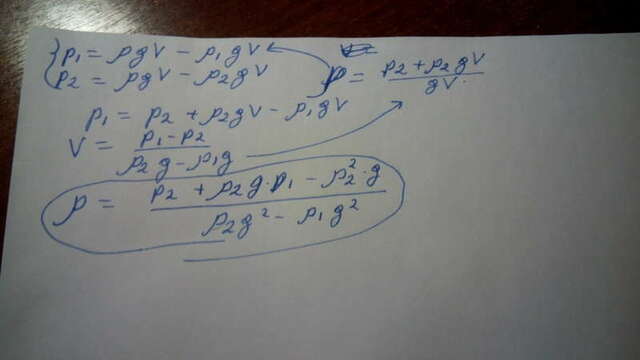 { p₁ = ρgV − ρ₁gV
{ p₂ = ρgV − ρ₂gV
ρ = (p₂ + ρ₂gV) / (gV)
p₁ = p₂ + ρ₂gV − ρ₁gV
V = (p₁ − p₂) / (ρ₂g − ρ₁g)
ρ = (p₂ + ρ₂g·p₁ − ρ₂²·g) / (ρ₂g² − ρ₁g²)